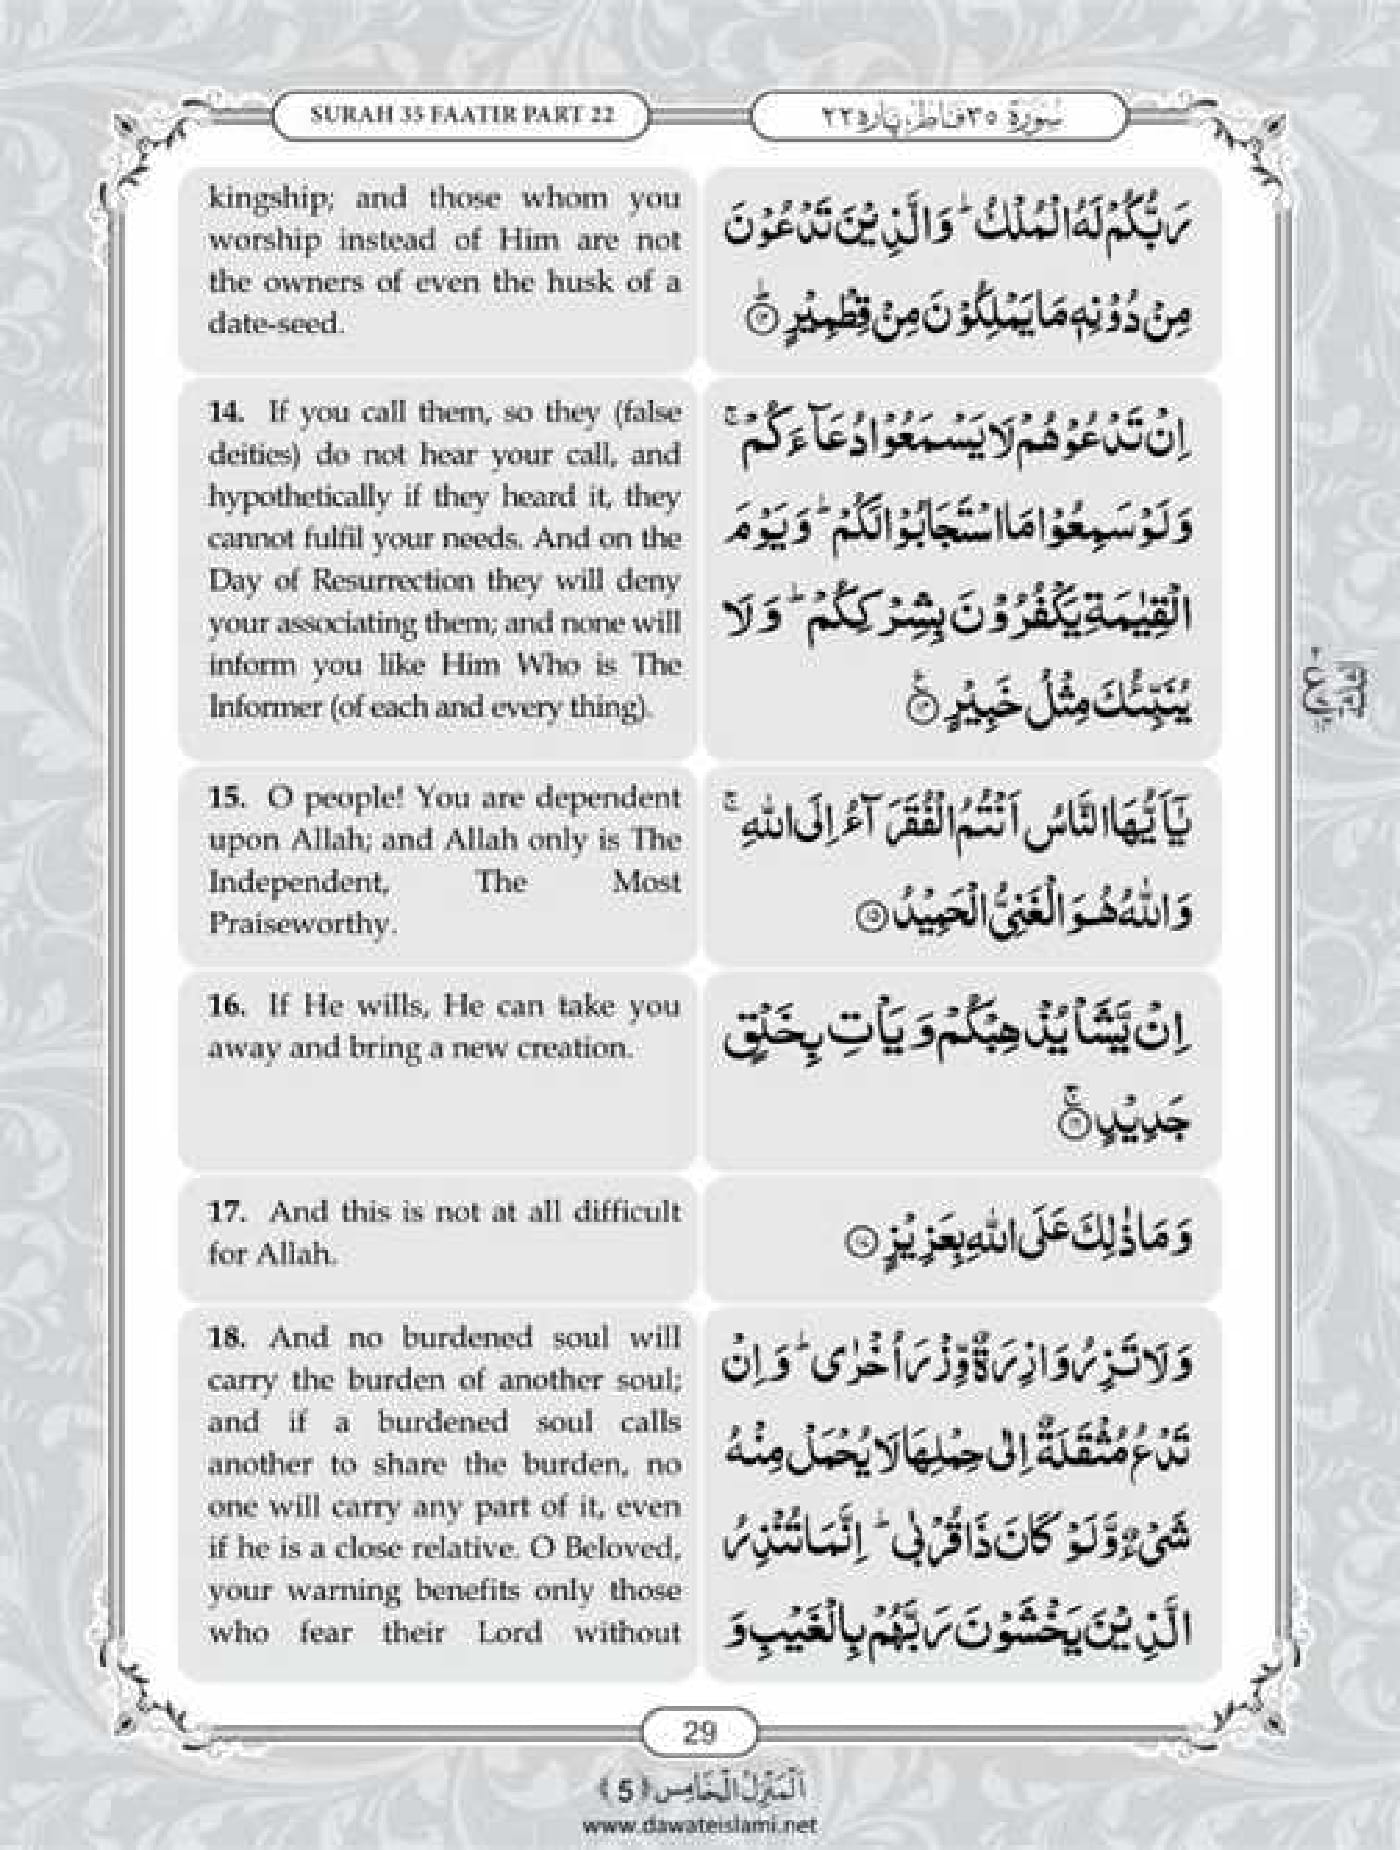 SURAH 35 FAATIR PART 22
سُوْرَةُ ٣٥ فَاطِرْ، پاره ٢٢
kingship; and those whom you
worship instead of Him are not
the owners of even the husk of a
date-seed.
رَبُّكُمْ لَهُ الْمُلْكُ ؕ وَالَّذِیْنَ تَدْعُوْنَ
مِنْ دُوْنِهٖ مَا یَمْلِكُوْنَ مِنْ قِطْمِیْرٍ ﴿۱۳﴾ؕ
14. If you call them, so they (false
deities) do not hear your call, and
hypothetically if they heard it, they
cannot fulfil your needs. And on the
Day of Resurrection they will deny
your associating them; and none will
inform you like Him Who is The
Informer (of each and every thing).
اِنْ تَدْعُوْهُمْ لَا یَسْمَعُوْا دُعَآءَكُمْ ۚ
وَلَوْ سَمِعُوْا مَا اسْتَجَابُوْا لَكُمْ ؕ وَیَوْمَ
الْقِیٰمَةِ یَكْفُرُوْنَ بِشِرْكِكُمْ ؕ وَلَا
یُنَبِّئُكَ مِثْلُ خَبِیْرٍ ﴿۱۴﴾
15. O people! You are dependent
upon Allah; and Allah only is The
Independent, The Most
Praiseworthy.
یٰۤاَیُّهَا النَّاسُ اَنْتُمُ الْفُقَرَآءُ اِلَی اللّٰهِ ۚ
وَاللّٰهُ هُوَ الْغَنِیُّ الْحَمِیْدُ ﴿۱۵﴾
16. If He wills, He can take you
away and bring a new creation.
اِنْ یَّشَاْ یُذْهِبْكُمْ وَیَاْتِ بِخَلْقٍ
جَدِیْدٍ ﴿۱۶﴾ۚ
17. And this is not at all difficult
for Allah.
وَمَا ذٰلِكَ عَلَی اللّٰهِ بِعَزِیْزٍ ﴿۱۷﴾
18. And no burdened soul will
carry the burden of another soul;
and if a burdened soul calls
another to share the burden, no
one will carry any part of it, even
if he is a close relative. O Beloved,
your warning benefits only those
who fear their Lord without
وَلَا تَزِرُ وَازِرَةٌ وِّزْرَ اُخْرٰی ؕ وَاِنْ
تَدْعُ مُثْقَلَةٌ اِلٰی حِمْلِهَا لَا یُحْمَلْ مِنْهُ
شَیْءٌ وَّلَوْ كَانَ ذَا قُرْبٰی ؕ اِنَّمَا تُنْذِرُ
الَّذِیْنَ یَخْشَوْنَ رَبَّهُمْ بِالْغَیْبِ وَ
29
اَلْمَنْزِلُ الْخَامِس ﴿5﴾
www.dawateislami.net